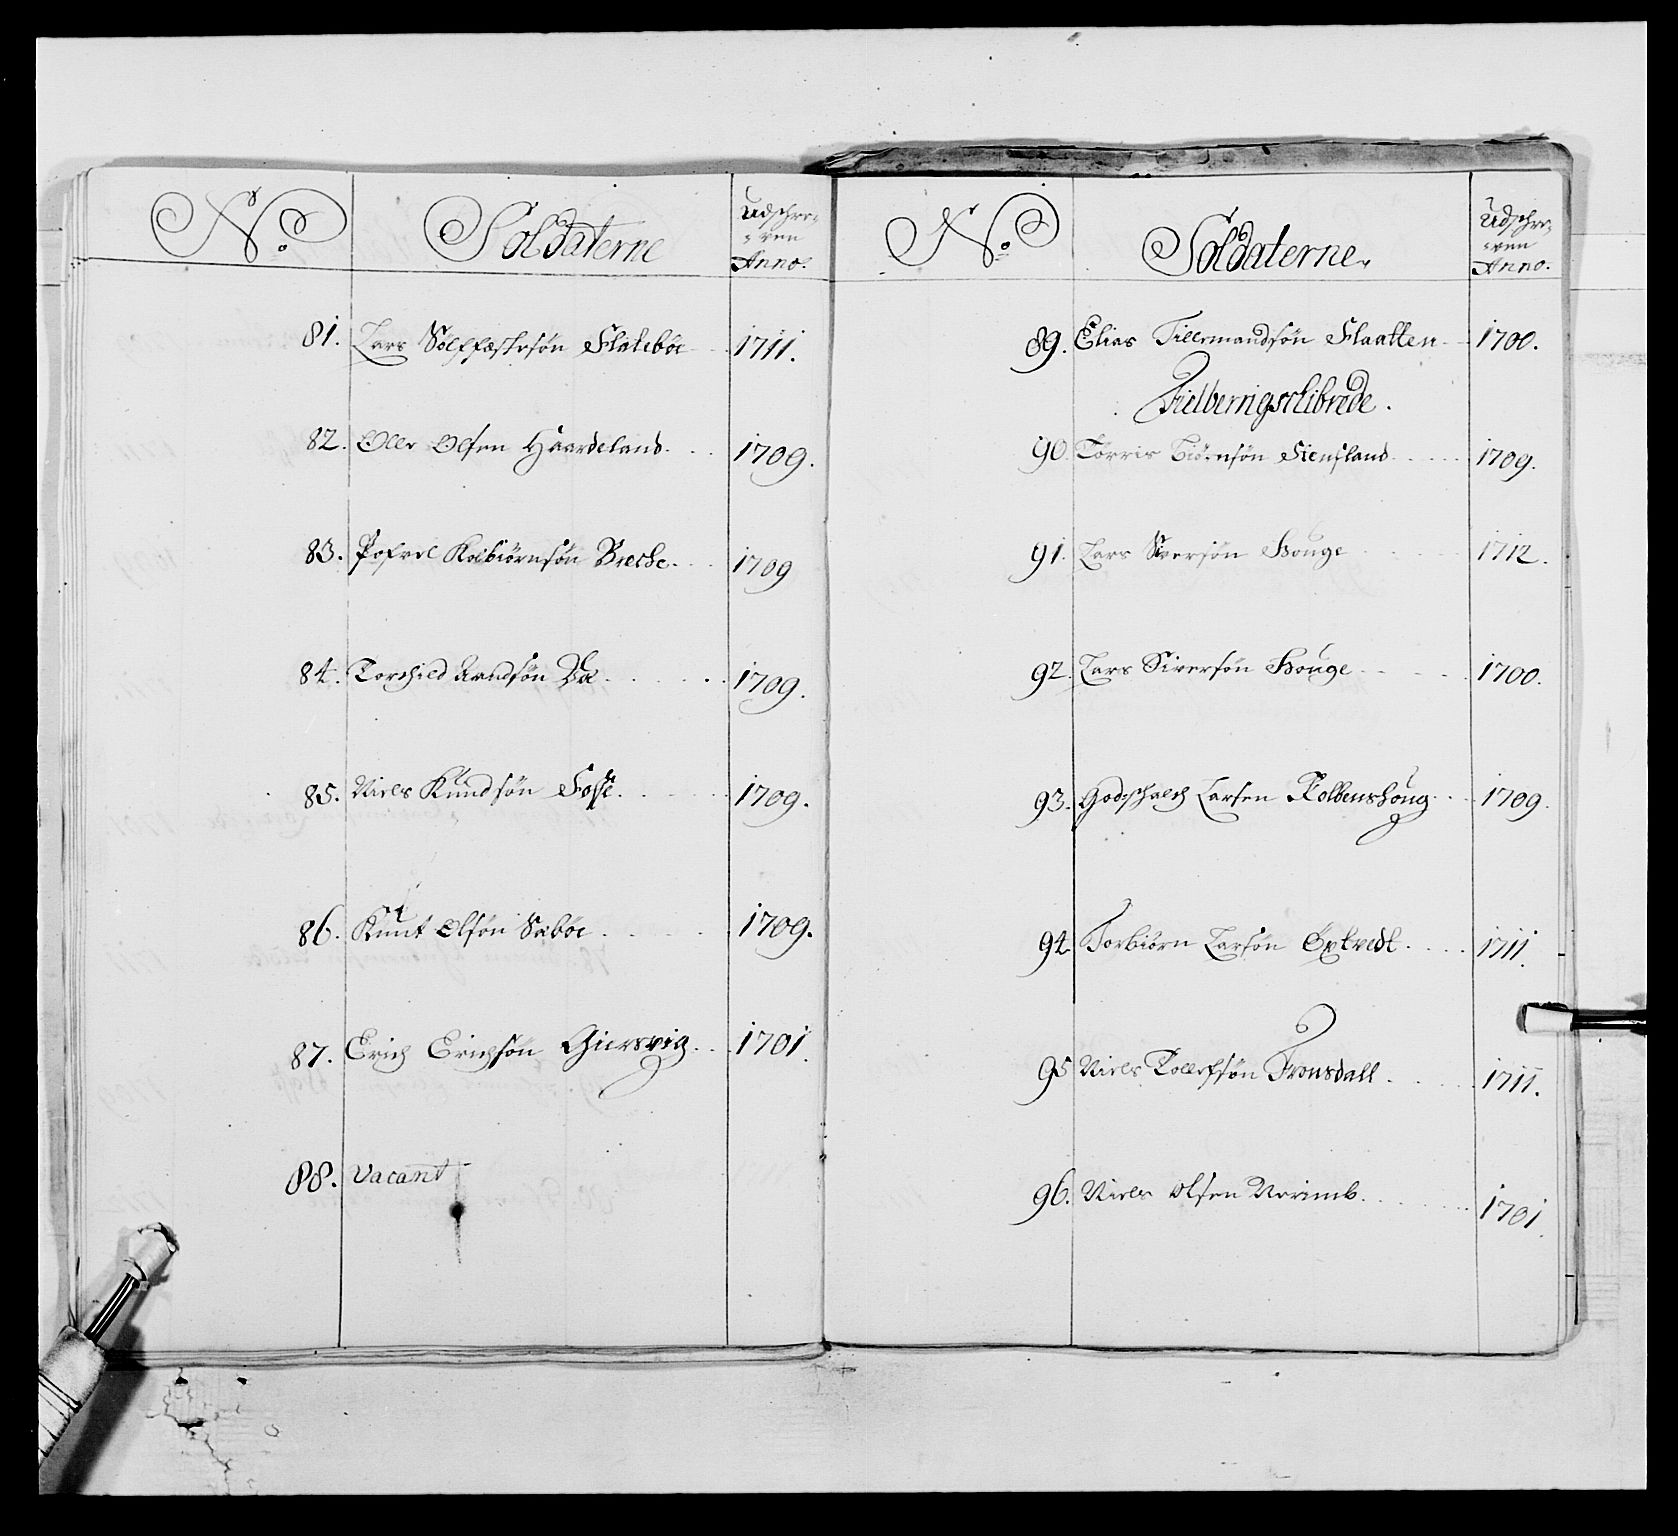 No. Soldaterne Udschre-
-ven
Anno.
81. Lars Sölffæstesön Flateböe 1711.
82. Olle Olsen Haardeland 1709.
83. Pofvel Kolbiörnsön Breche 1709
84. Torchild Amdsön Bæ 1709.
85. Niels Knudsön Fosse 1709.
86. Knut Olsön Sæböe 1709.
87. Erich Erichsön Giersvig 1701.
88. Vacant
No. Soldaterne. Udschre-
-ven
Anno.
89. Elias Tillermandsön Flaatten 1700.
Fielbergschibrede.
90. Törris Biörnsön Fiensland 1709.
91. Lars Siversön Houge 1712.
92. Lars Siversön Houge 1700.
93. Godschalch Larsen Kolbenshoug 1709.
94. Torbiörn Larsön Öxtvedt 1711.
95 Niels Tollefsön Tronsdall 1711.
96. Niels Olsen Nerimb 1701.